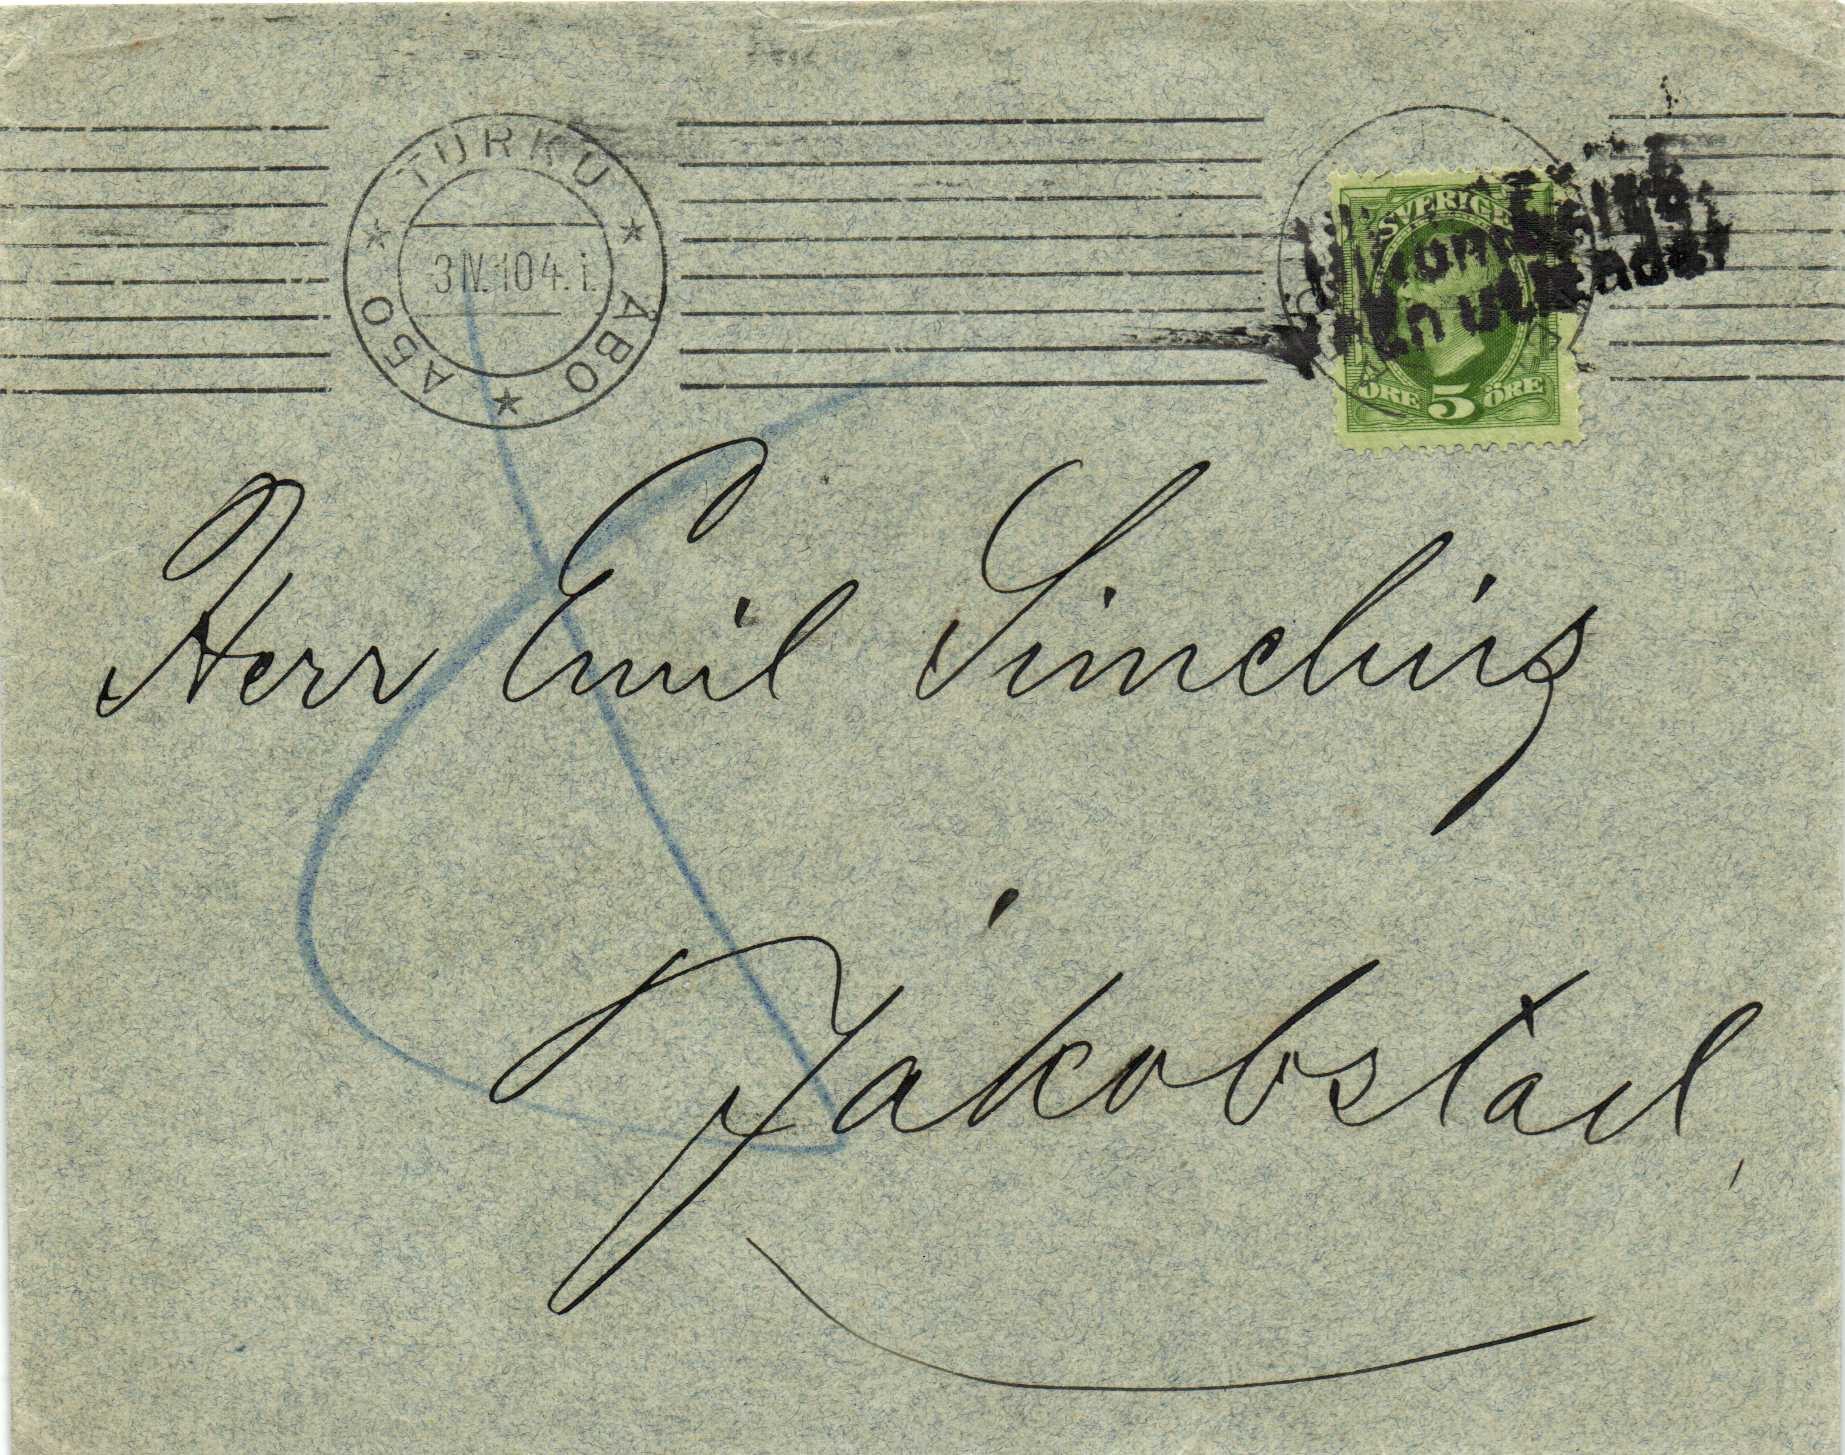 TURKU ÅBO АБО
3 IV. 10 4. i.
SVERIGE
ÖRE 5 ÖRE
Herr Emil Simelius
Jakobstad,